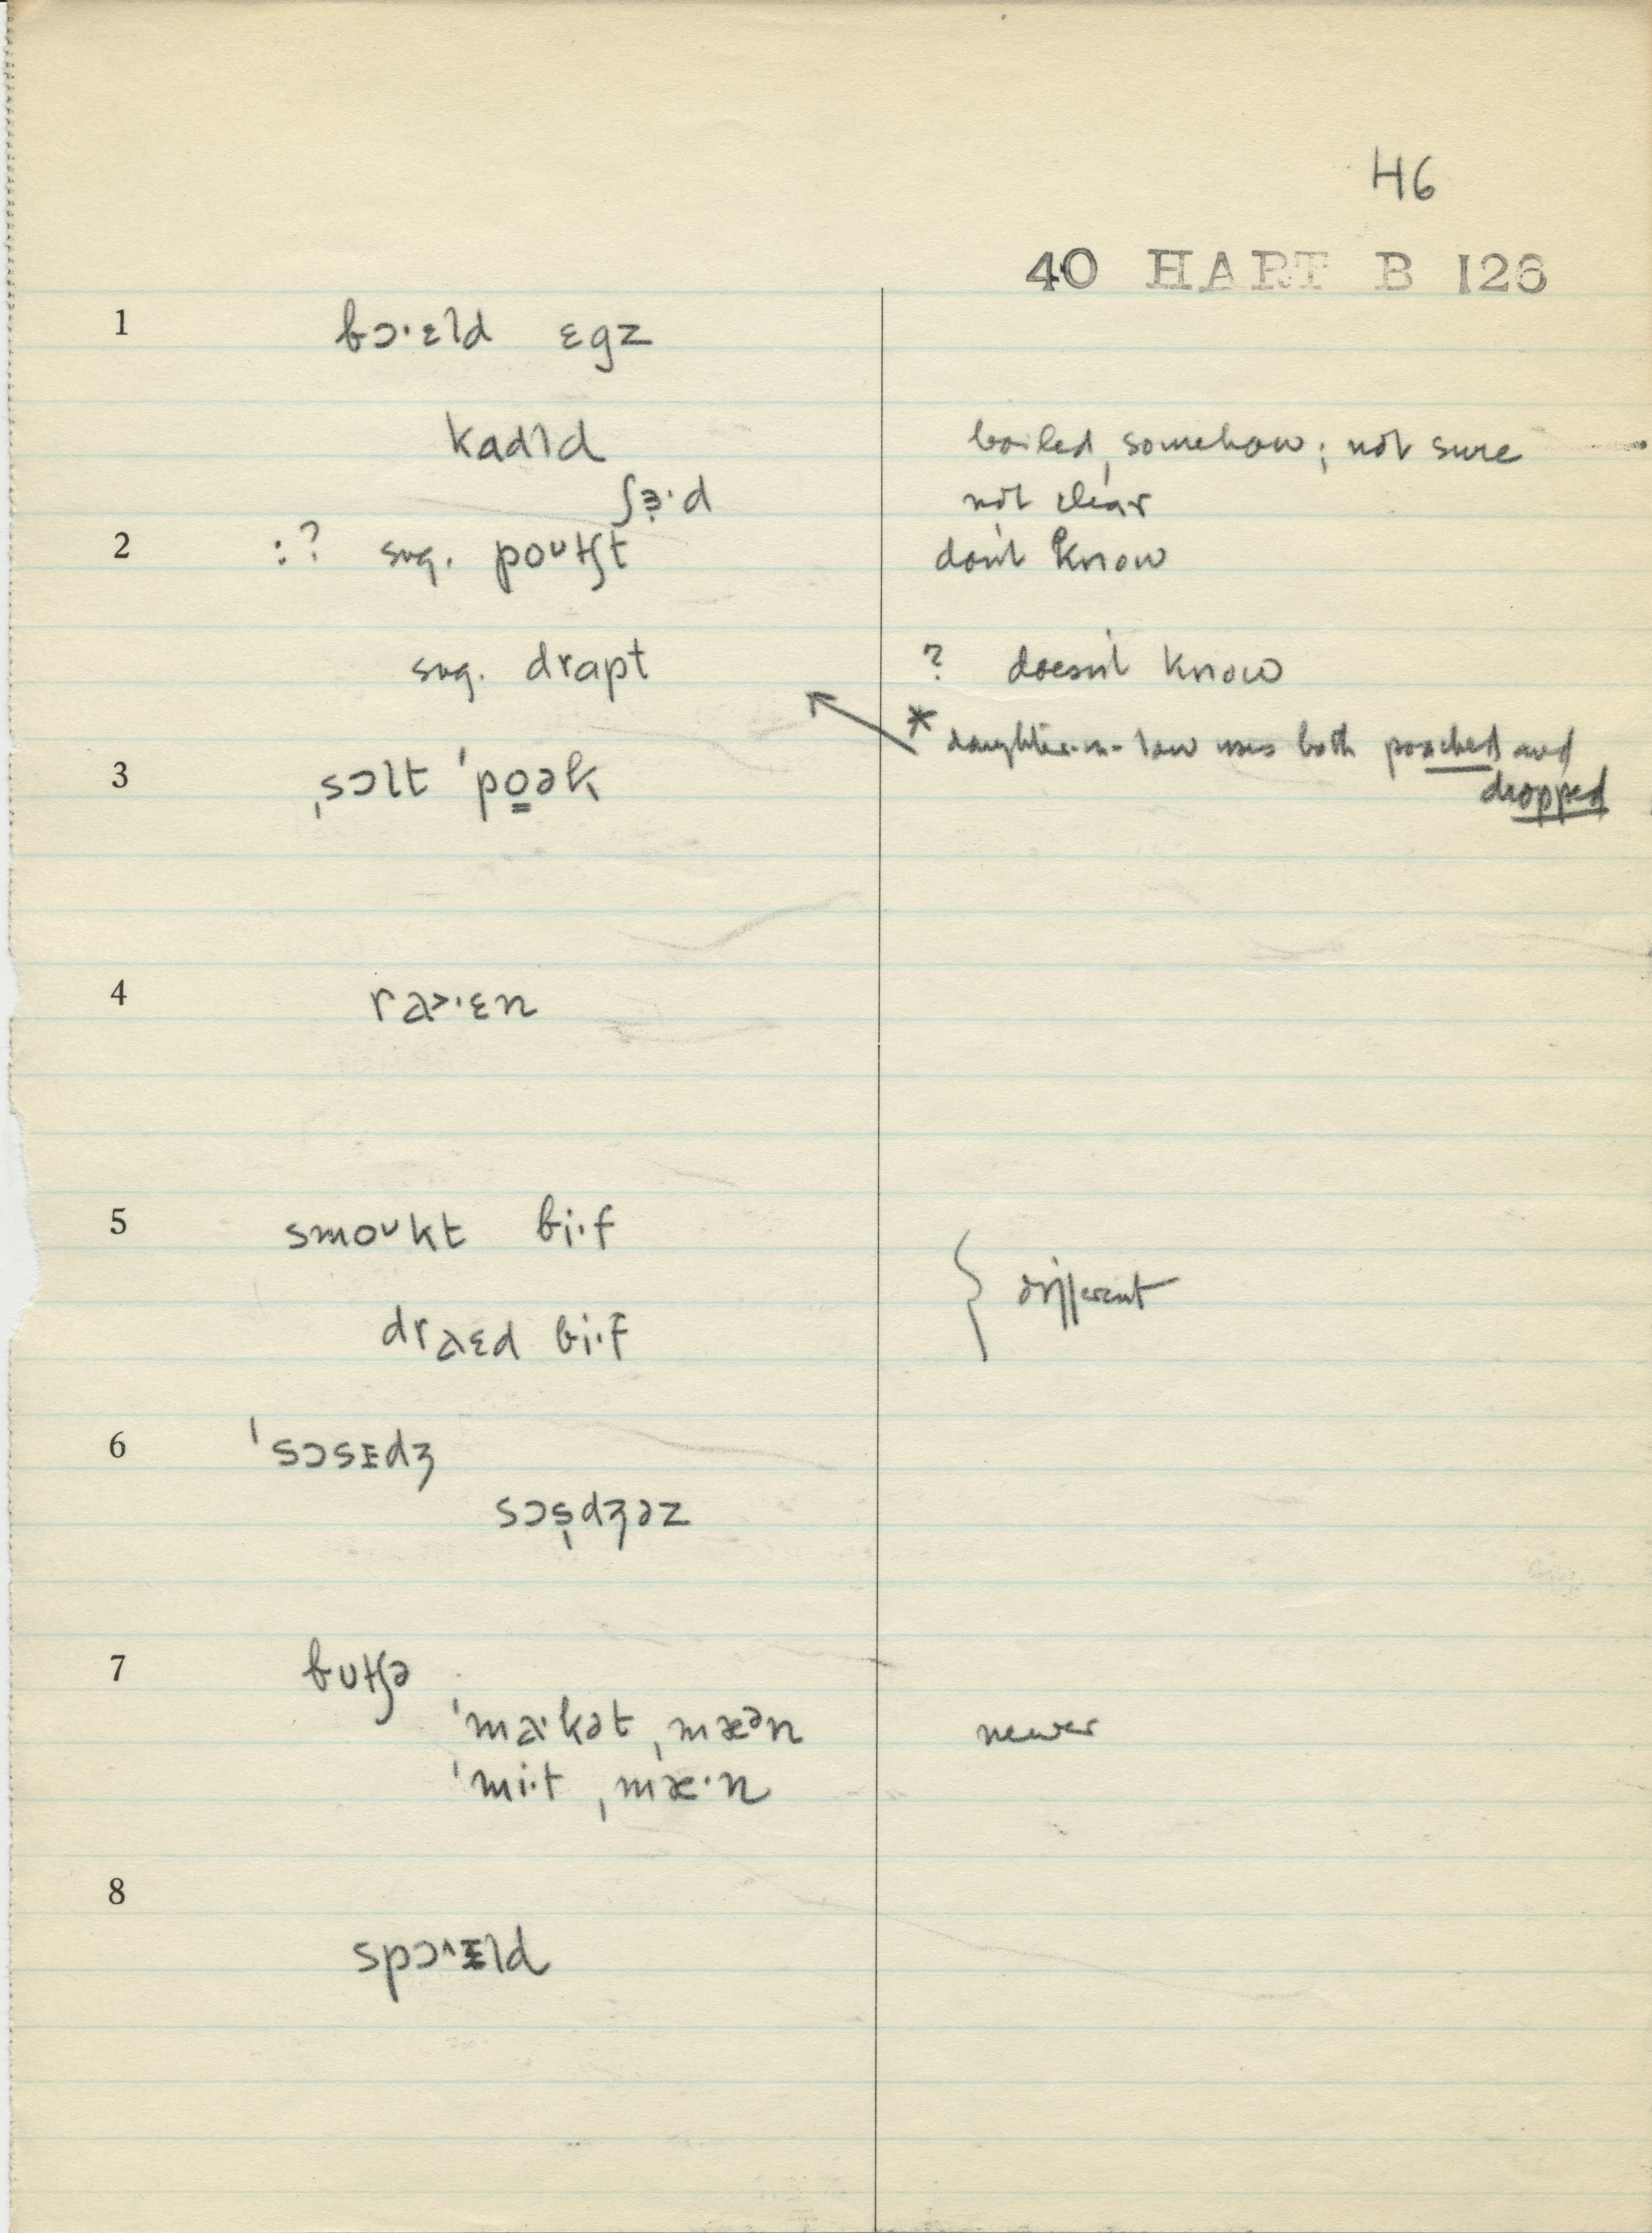 H6
40 HART B 126
1 bɔ·ɛld ɛgz
kadld boiled, somehow; not sure
ʃɜ·d not clear
2 :? sug. poᴜtʃt don't know
sug. drapt ? doesn't know
* daughter-in-law uses both poached and
dropped
3 ˌsɔlt ˈpo̳ək
4 ra>·ɛn
5 smoᴜkt bi·f
different
draɛd bi·f
6 ˈsɔsɪdʒ
sɔs̩dʒəz
7 bʊtʃə
ˈma·kət ˌmæᵊn newer
ˈmi·t ˌmæ·n
8
spɔ^·ɪld